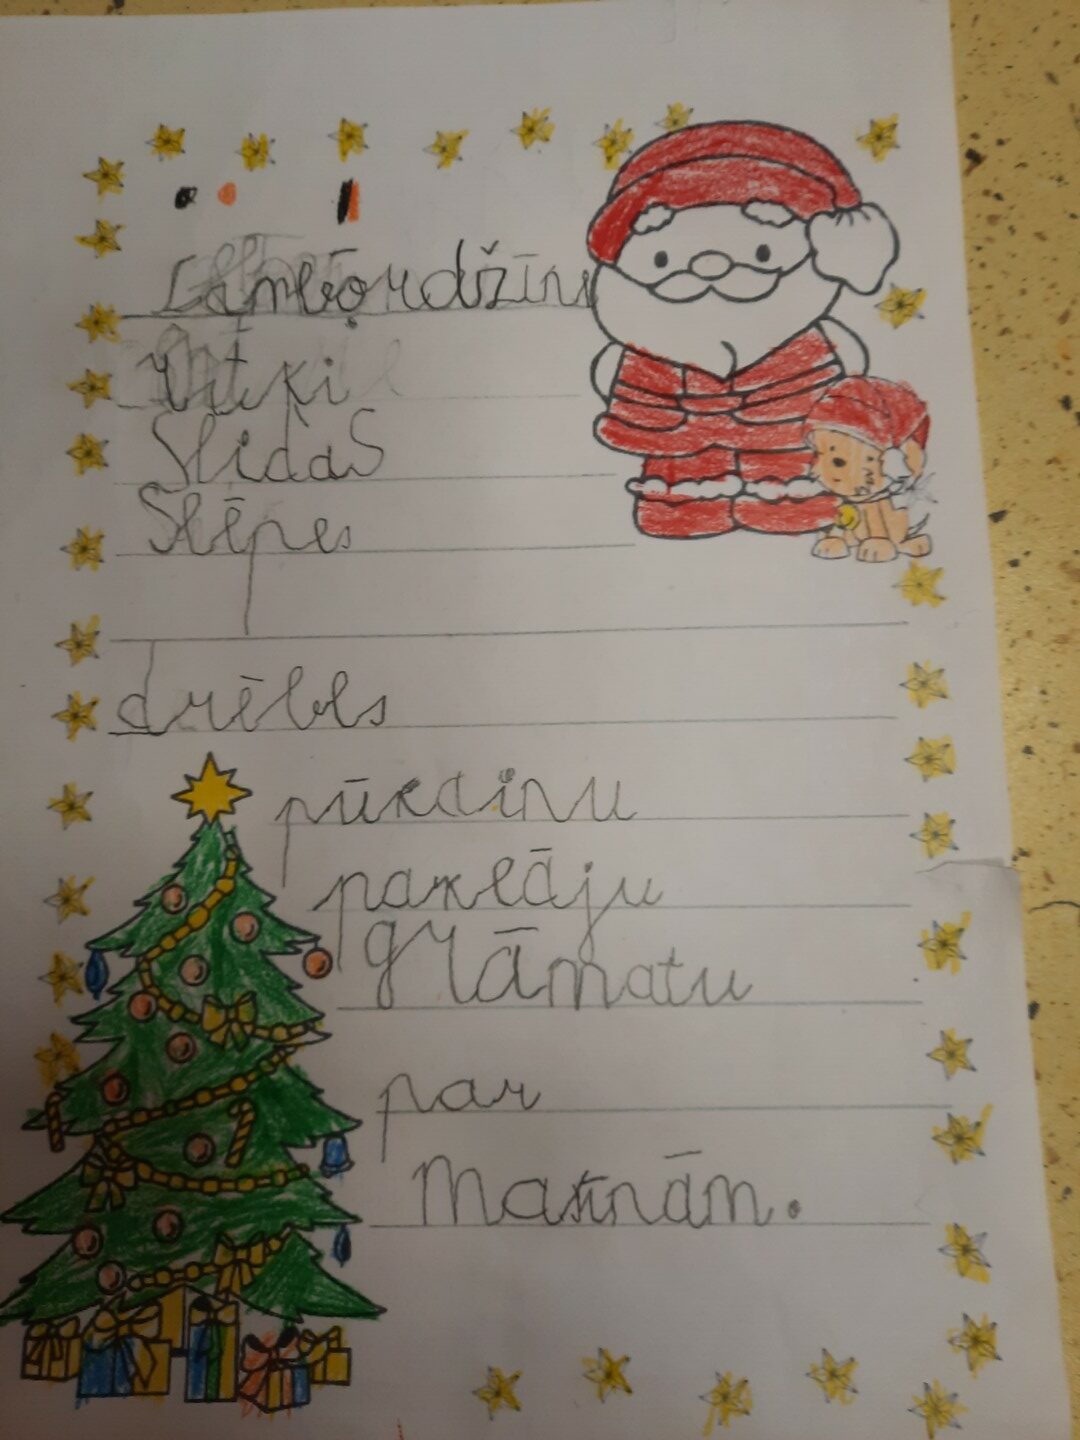 Lambordžīni
ritķi
Slidas
Slēpes
drēbes
pūkainu
paklāju
grāmatu
par
Mašīnām.